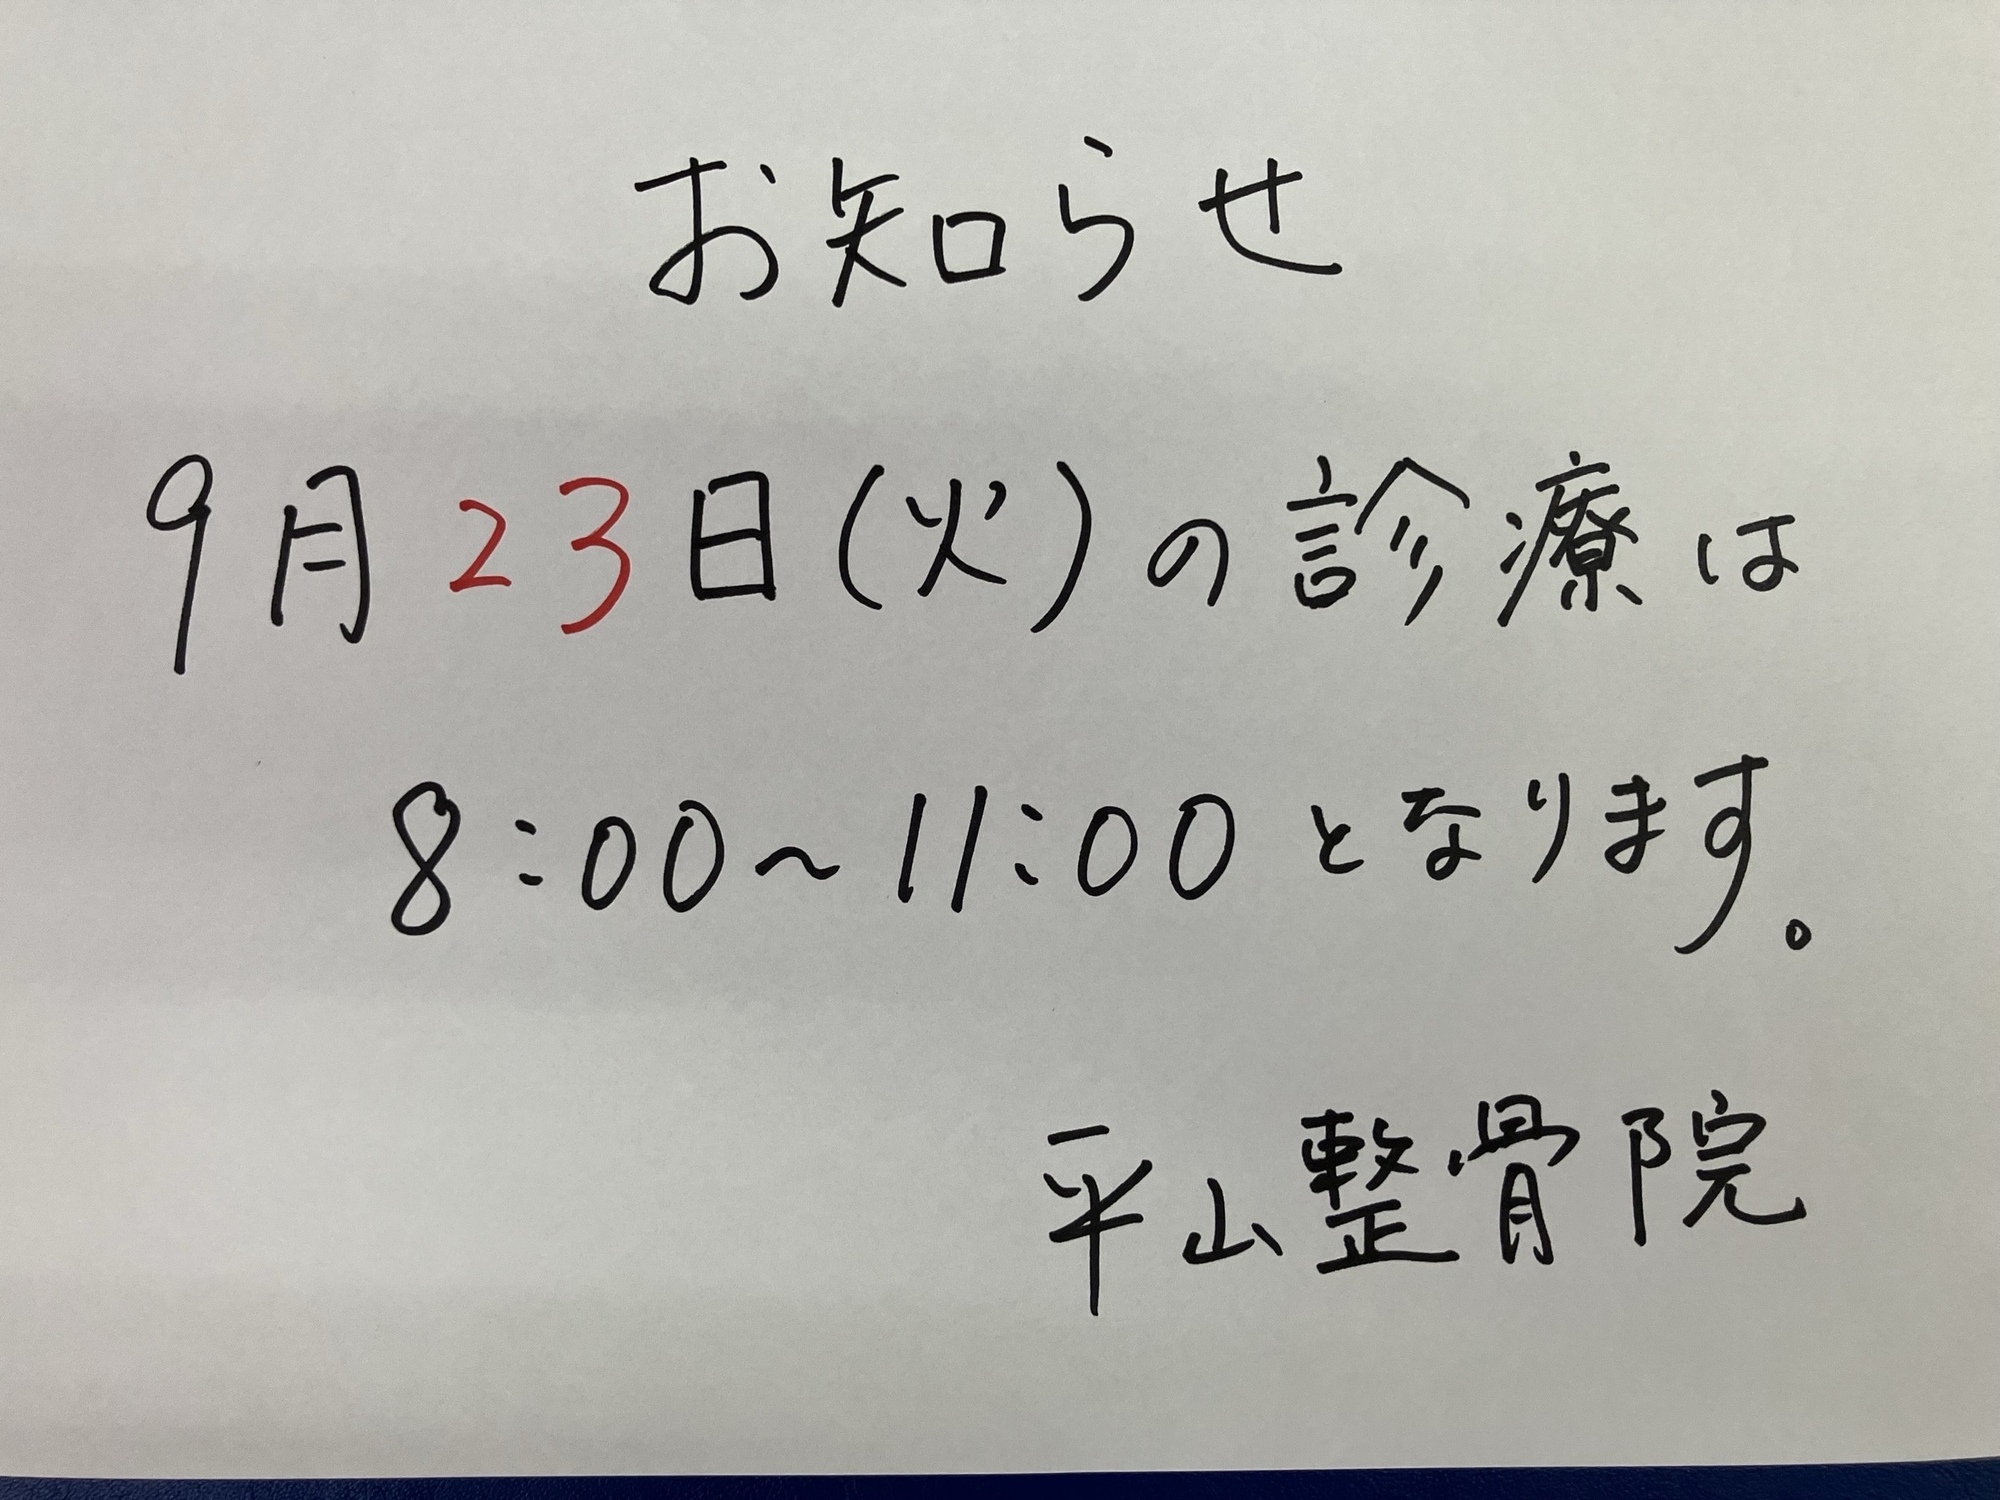 お知らせ
9月23日(火)の診療は
8:00～11:00となります。
平山整骨院